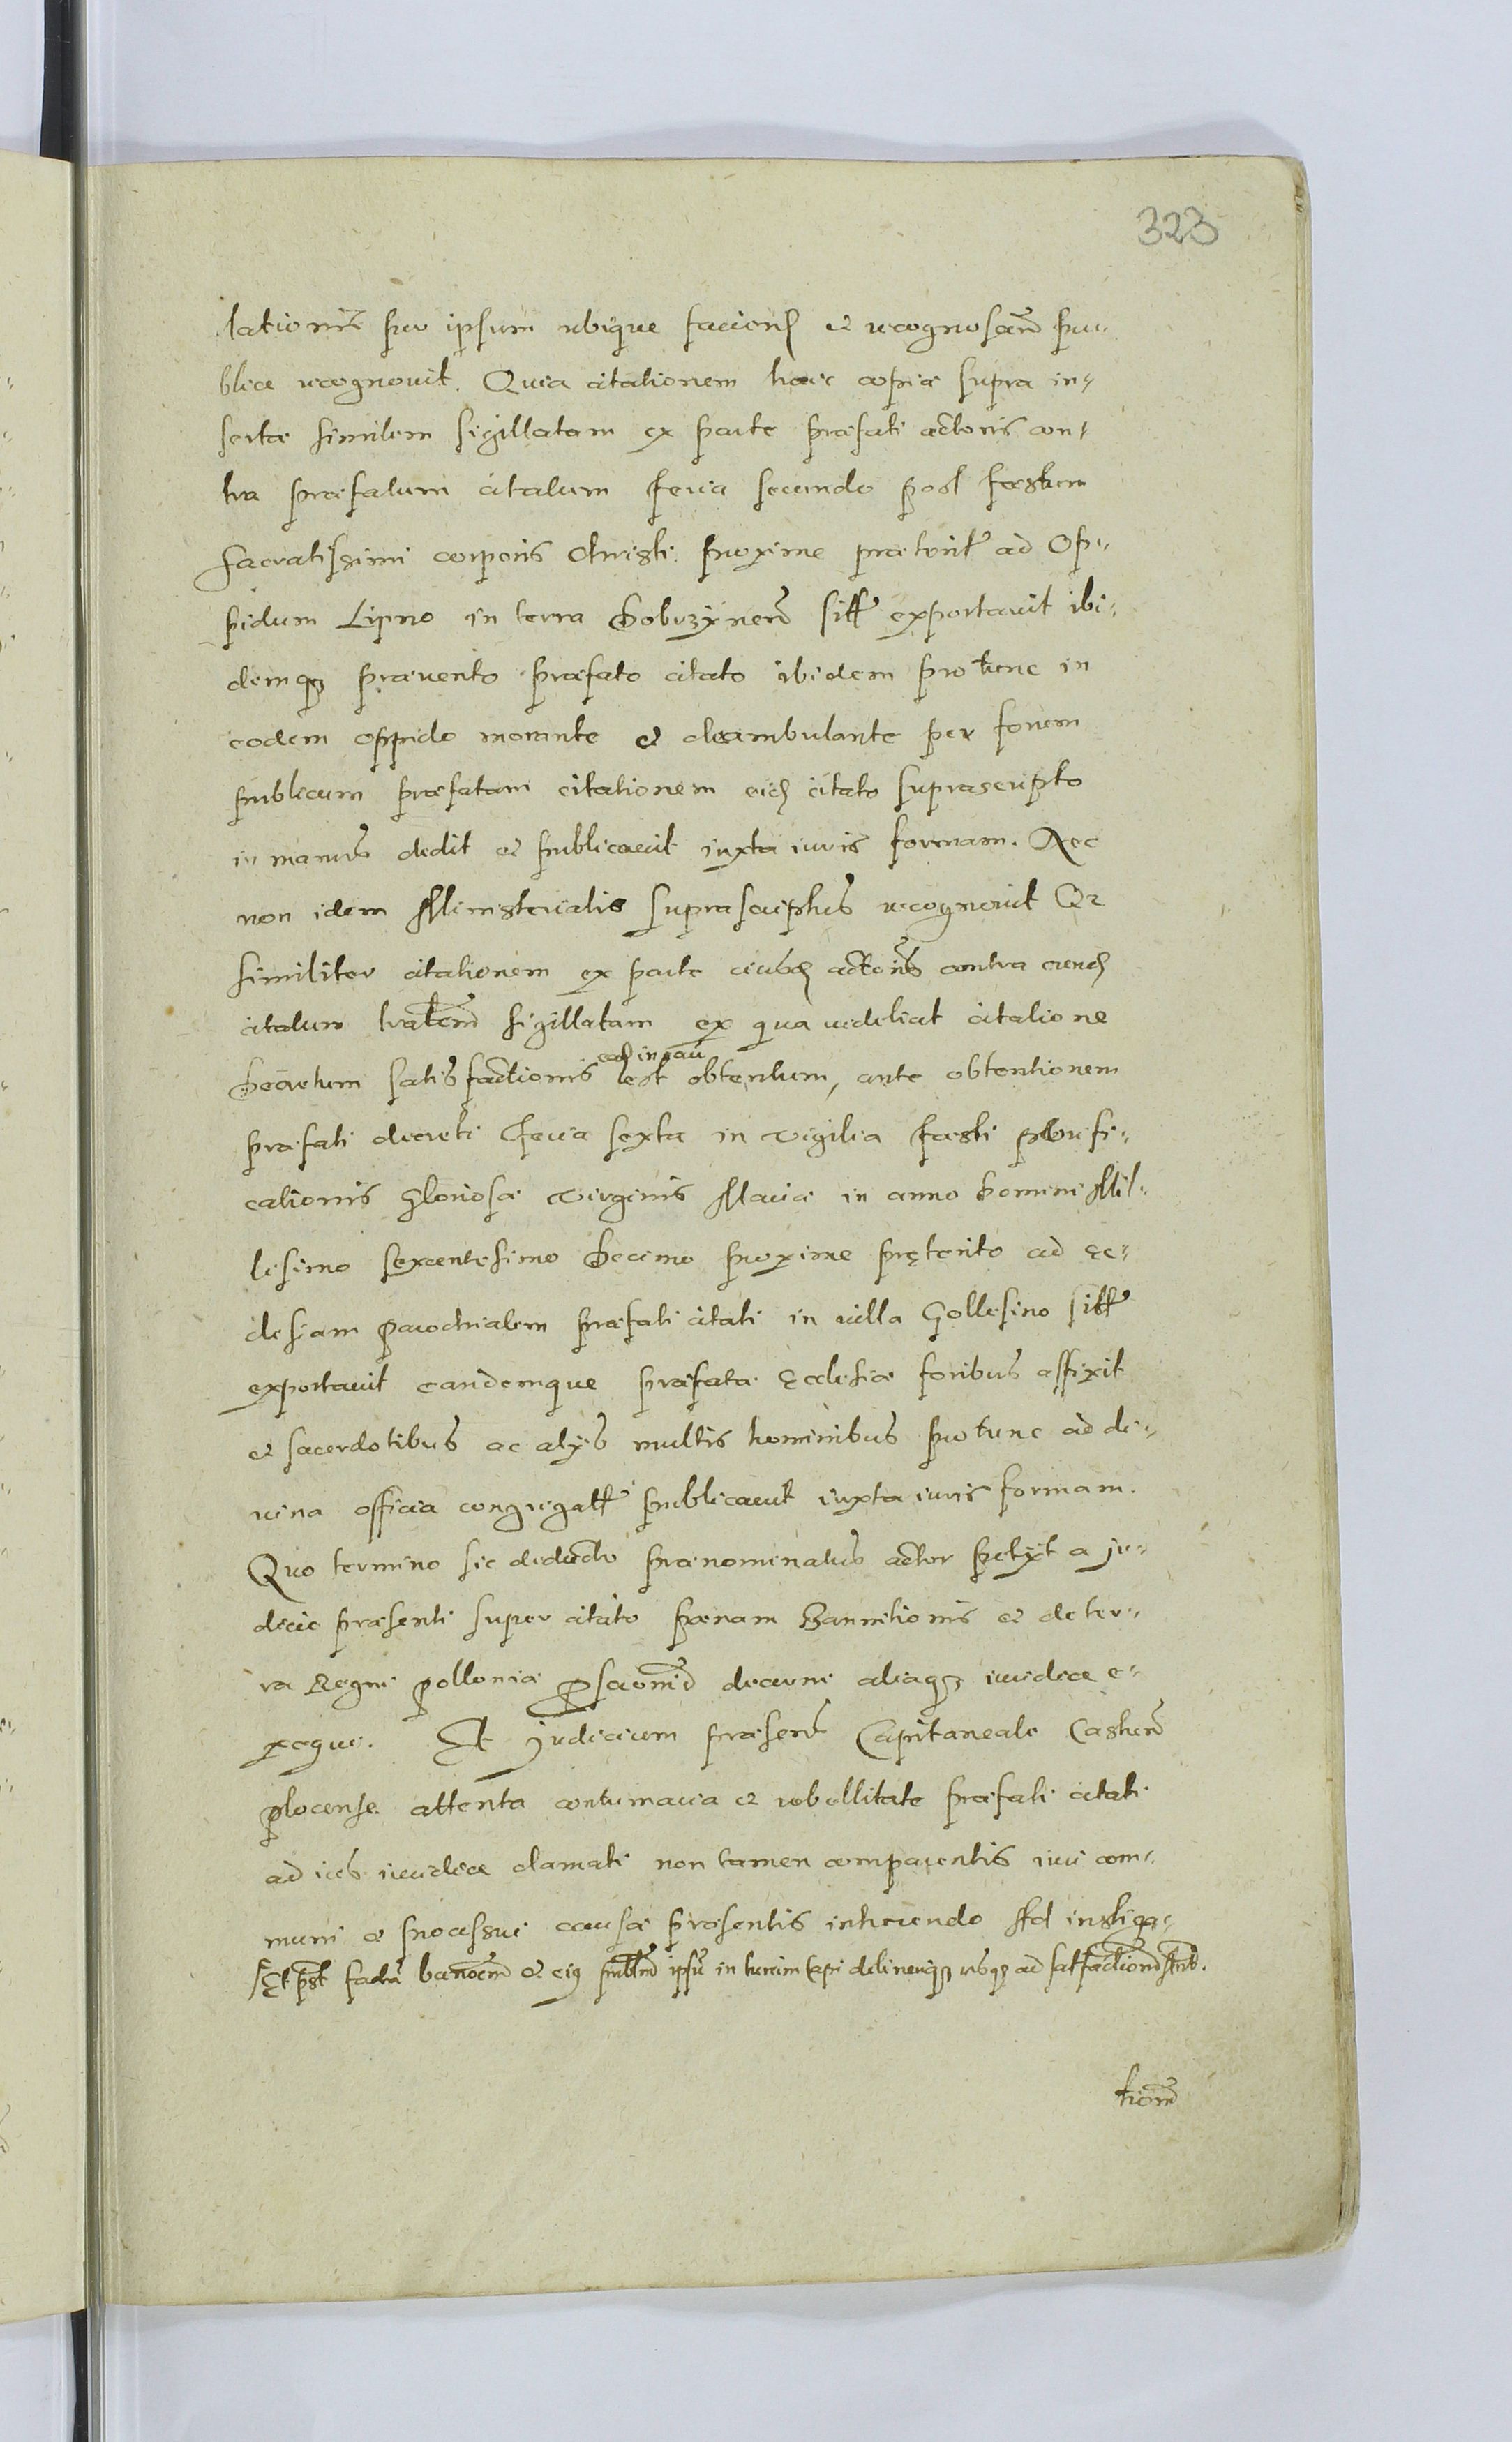 323
lationis per ipsum ubique faciend et recognoscen pu-
blice recognovit. Quia citationem huic copiæ supra in-
sertæ similem sigillatam ex parte præfati actoris con-
tra præfatum citatum Feria secunda post Fæstum
Sacratissimi corporis Christi proxime præterit ad Op-
pidum Lipno in terra Dobrzynen sitt exportavit ibi-
demq prævento præfato citato ibidem protunc in
eodem oppido morante et deambulante per forum
publicum præfatam citationem eid citato suprascripto
in manus dedit et publicavit iuxta iuris formam. Nec
non idem Ministerialis suprascriptus recognovit Qz
similiter citationem ex parte eiusd actoris contra eund
citatum sigillatam ex qua videlicet citatione
Decretum satisfactionis ead in cau est obtentum, ante obtentionem
præfati decreti Feria sexta in vigilia Fæsti Purifi-
cationis Gloriosæ Virginis Mariæ in anno Domini Mil-
lesimo sexcentesimo Decimo proxime pręterito ad Ec-
clesiam parochialem præfati citati in villa Gollesino sitt
exportavit eandemque præfatæ Ecclesiæ foribus affixit
et sacerdotibus ac alÿs multis hominibus protunc ad di-
vina officia congregatt publicavit iuxta iuris formam.
Quo termino sic deducto prænominatus actor petÿt a ju-
dicio præsenti super citato pœnam Bannitionis et de ter-
ra Regni Polloniæ decerni aliaq iuridice e-
xequi. Et judicium præsens Capitaneale Castren
Plocense attenta contumacia et rebellitate præfati citati
ad ius iuridice clamati non tamen comparentis iuri com-
muni et processui causæ præsentis inhærendo ad instiga-
Et post factã et eiq ipsũ in turrim capi detineriq usq ad
tionẽ